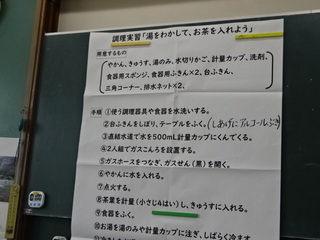 調理実習「湯をわかして、お茶を入れよう」
用意するもの
やかん、きゅうす、湯のみ、水切りかご、計量カップ、洗剤、
食器用スポンジ、食器用ふきん×2、台ふきん、
三角コーナー、排水ネット×2、
手順 ①使う調理器具や食器を水洗いする。
②台ふきんをしぼり、テーブルをふく。(しあげにアルコールぶき)
③直結水道で水を500mL計量カップにくんでくる。
④2人組でガスこんろを設置する。
⑤ガスホースをつなぎ、ガスせん(黒)を開く。
⑥やかんに水を入れる。
⑦点火する。
⑧茶葉を計量(小さじ4はい)し、きゅうすに入れる。
⑨食器をふく。
⑩お湯を湯のみや計量カップに注ぎ、しばらく冷ます